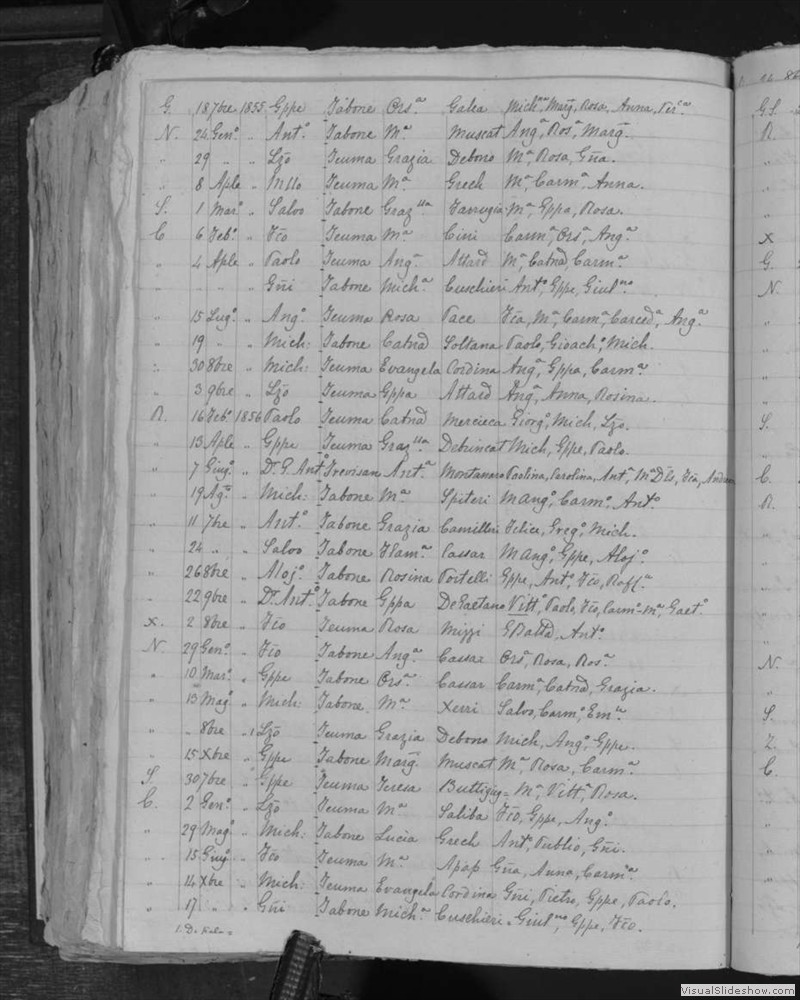 G. 18 7bre 1855 Gppe Tabone Ors.a Galea Mich.na Marg. Rosa, Anna,
N. 24 Gen.o " Ant.o Tabone M.a Muscat Ang.a, Ros.a, Marg.
" 29 " " Lzo Teuma Grazia Debono M.a, Rosa, Gna.
" 8 Aple " Nllo Teuma M.a Grech M.a, Carm.a, Anna.
S. 1 Mar.o " Salvo Tabone Graz.lla Farrugia M.a, Gppa, Rosa.
C. 6 Feb.o " Fco Teuma M.a Cini Carm.a, Ors.a, Ang.a X
" 4 Aple " Paolo Teuma Ang.a Attard M.a, Catnd, Carm.a G.
" " " " Gni Tabone Mich.a Cuschieri Ant.o, Gppe, Giul.no N.
" 15 Lug.o " Ang.o Teuma Rosa Pace Fca, M.a, Carm.a, Ang.a
" 19 " " Mich: Tabone Catnd Soltana Paolo, Gioach.o, Mich.
" 30 8bre " Mich: Teuma Evangela Cordina Ang.a, Gppa, Carm.a
" 3 9bre " Lzo Teuma Gppa Attard Ang.a, Anna, Rosina.
R. 16 Feb.o 1856 Paolo Teuma Catnd Mercieca Giorg.o, Mich, Lzo. S.
" 13 Aple " Gppe Teuma Graz.lla Debrincat Mich, Gppe, Paolo.
" 7 Giug.o " Dr. P. Ant.o Trevisan Ant.a Montanaro Paolina, Carolina, Ant.a, Fca, C.
" 19 Ag.o " Mich: Tabone M.a Spiteri Mang.o, Carm.o, Ant.o R.
" 11 7bre " Ant.o Tabone Grazia Camilleri Felice, Greg.o, Mich.
" 24 " " Salvo Tabone Flam.a Cassar Mang.o, Gppe, Aloj.o
" 26 8bre " Aloj.o Tabone Rosina Portelli Gppe, Ant.o, Fco, Raff.a
" 22 9bre " Dr. Ant.o Tabone Gppa DeGaetano Vitt.o, Paolo, Fco, Carm.a M.a, Gaet.o
X. 2 8bre " Fco Teuma Rosa Mizzi GBatta, Ant.o
N. 29 Gen.o " Fco Tabone Ang.a Cassar Ors.a, Rosa, Ros.a N.
" 10 Mar.o " Gppe Tabone Ors.a Cassar Carm.a, Catnd, Grazia.
" 13 Mag.o " Mich: Tabone M.a Xerri Salvo, Carm.o, Em.a S.
" " 8bre " Lzo Teuma Grazia Debono Mich, Ang.o, Gppe. Z.
" 15 Xbre " Gppe Tabone Marg. Muscat M.a, Rosa, Carm.a C.
S. 30 7bre " Gppe Teuma Teresa Buttigieg M.a, Vitt.a, Rosa.
C. 2 Gen.o " Lzo Teuma M.a Saliba Fco, Gppe, Ang.o
" 29 Mag.o " Mich: Tabone Lucia Grech Ant.o, Publio, Gni.
" 15 Giug.o " Fco Teuma M.a Apap Gna, Anna, Carm.a
" 14 Xbre " Mich: Teuma Evangela Cordina Gni, Pietro, Gppe, Paolo.
" 17 " " Gni Tabone Mich.a Cuschieri Giul.no, Gppe, Fco.
VisualSlideshow.com